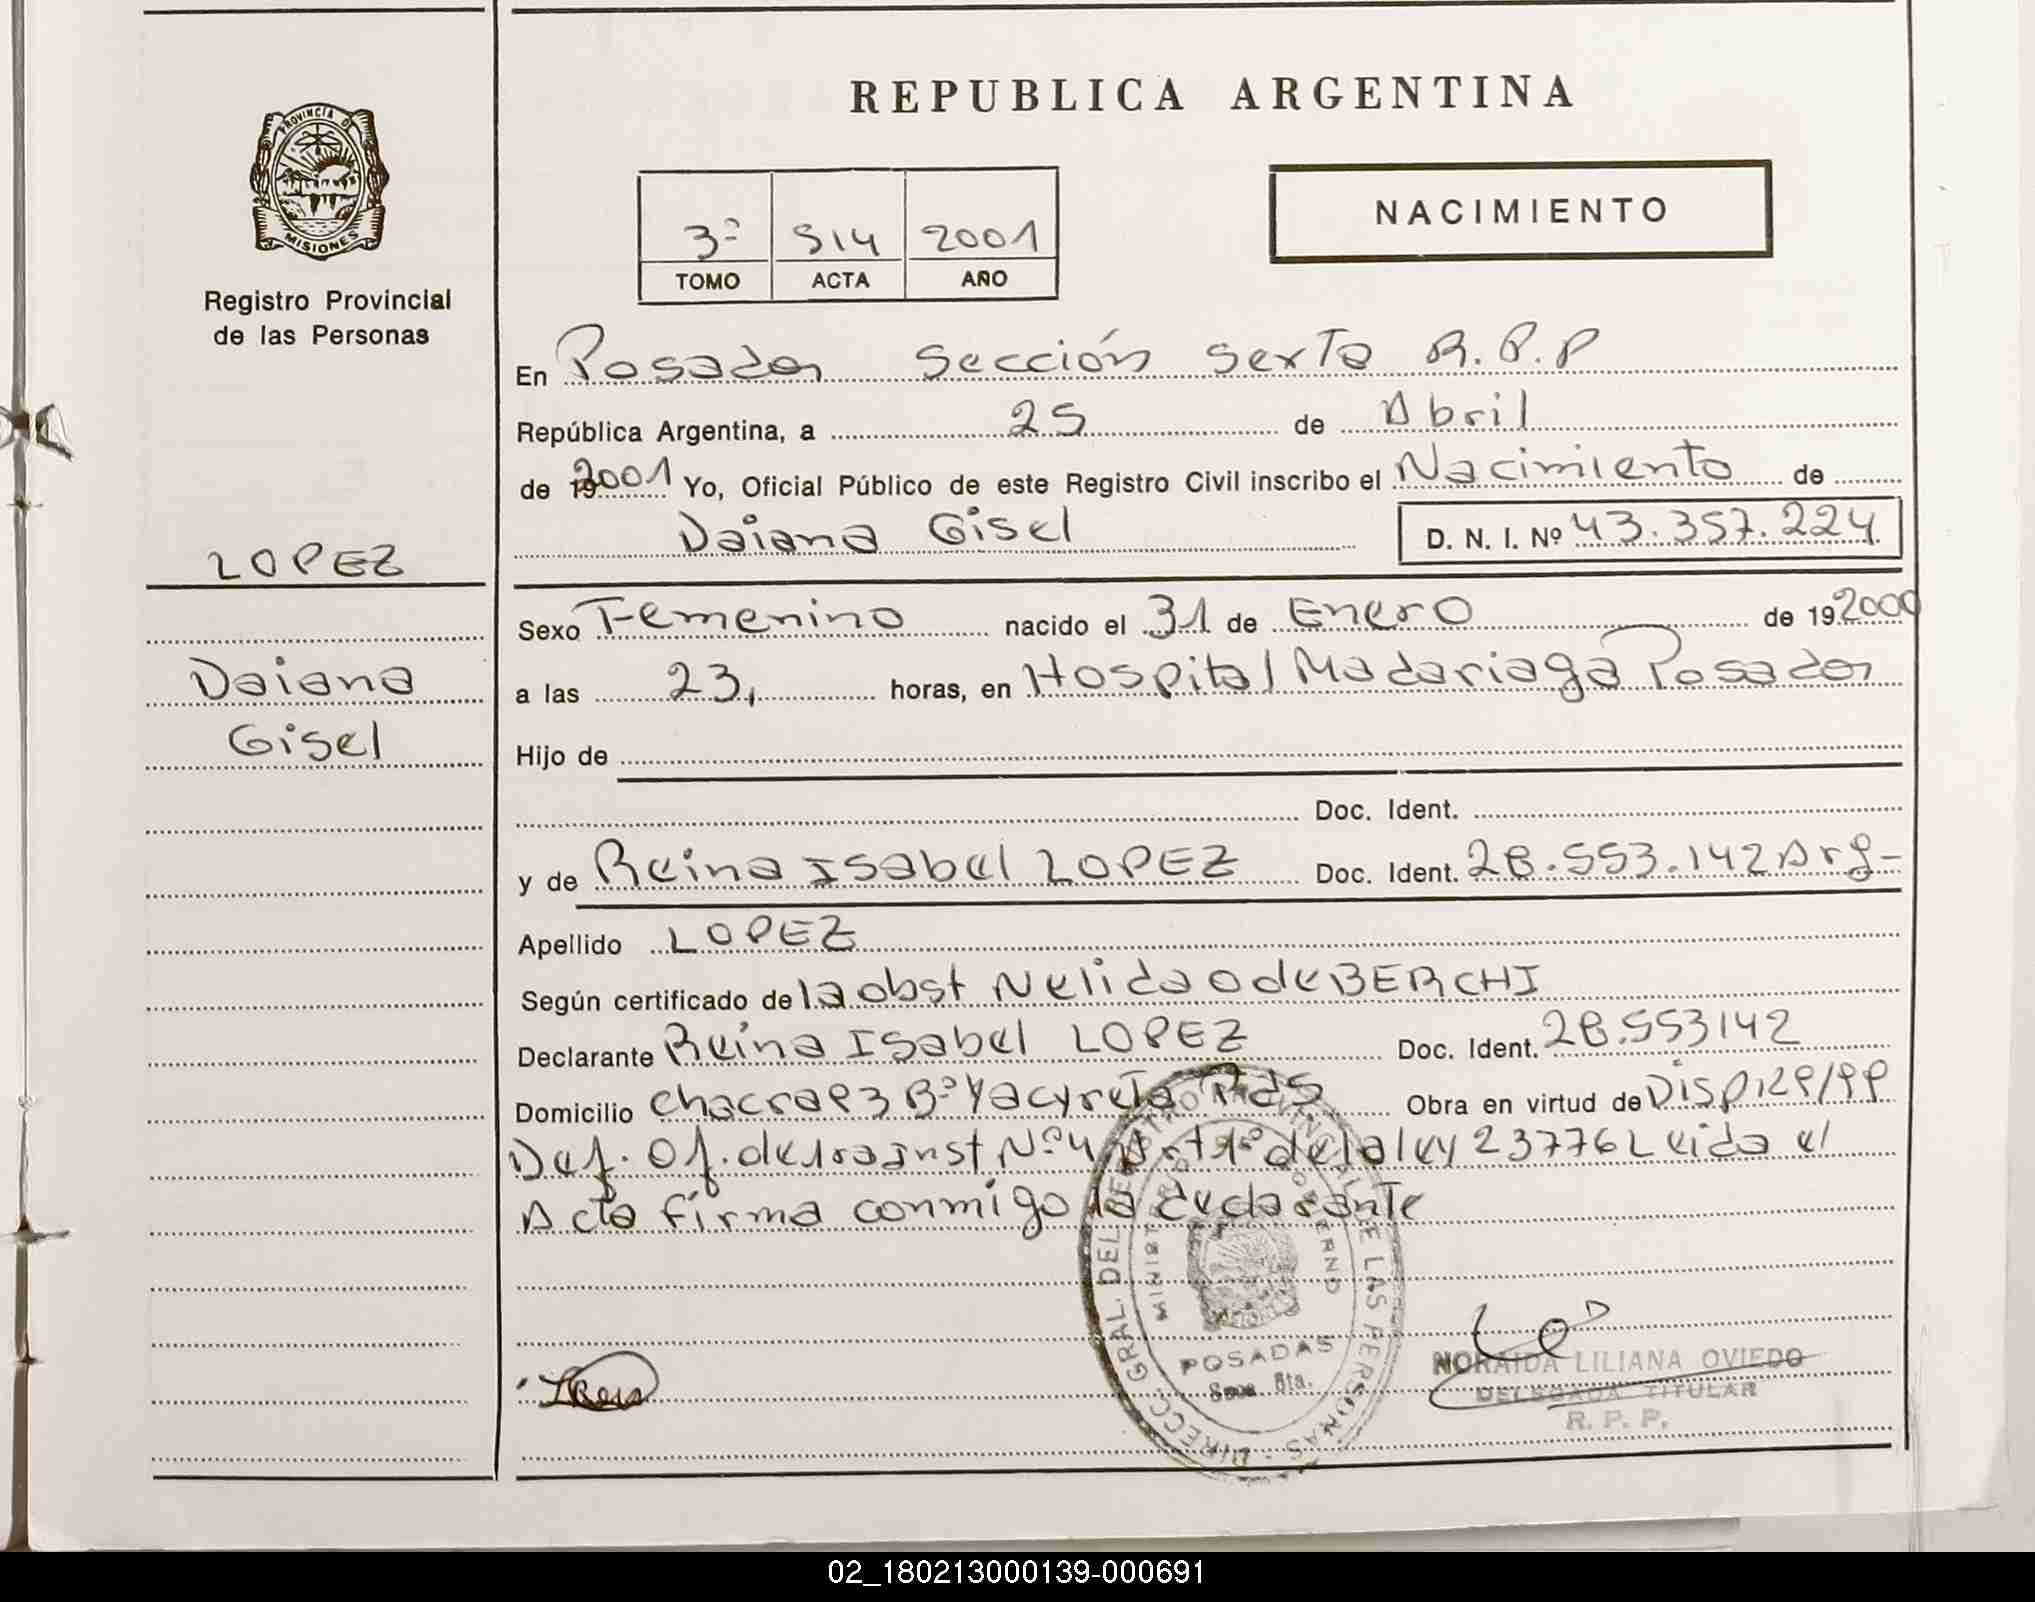 REPUBLICA ARGENTINA
PROVINCIA D MISIONES
Registro Provincial
de las Personas
3º 514 2001
TOMO ACTA AÑO
NACIMIENTO
En Posadas Sección Sexta R.P.P
República Argentina, a 25 de Abril
de 192001 Yo, Oficial Público de este Registro Civil inscribo el Nacimiento de
Daiana Gisel D. N. I. Nº 43.357.224
LOPEZ
Daiana
Gisel
Sexo Femenino nacido el 31 de Enero de 192000
a las 23, horas, en Hospital Madariaga Posadas
Hijo de
Doc. Ident.
y de Reina Isabel LOPEZ Doc. Ident. 28.553.142 Arg-
Apellido LOPEZ
Según certificado de la obst Nelida O de BERCHI
Declarante Reina Isabel LOPEZ Doc. Ident. 28.553142
Domicilio chacra Bº Yacyreta Pds Obra en virtud de Disp 129/99
Def. Of. de 1ra inst Nº 4 Art 1º de la ley 23776 Leida el
Acta firma conmigo la declarante
DIRECC. GRAL. DEL REGISTRO PROVINCIAL DE LAS PERSONAS
MINISTERIO GOBIERNO
POSADAS
Secc. 6ta.
NORAIDA LILIANA OVIEDO
DELEGADA TITULAR
R. P. P.
02_180213000139-000691